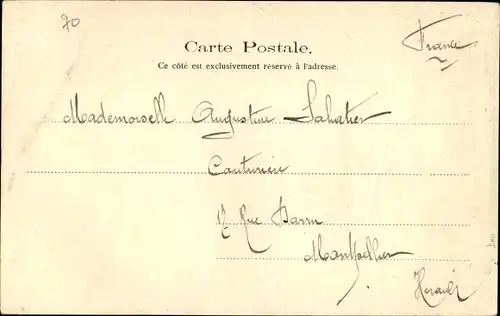 70
Carte Postale.
France
Ce côté est exclusivement réservé à l'adresse.
Mademoiselle Augustine Sabatier
Couturière
12 Rue
Montpellier
Herault